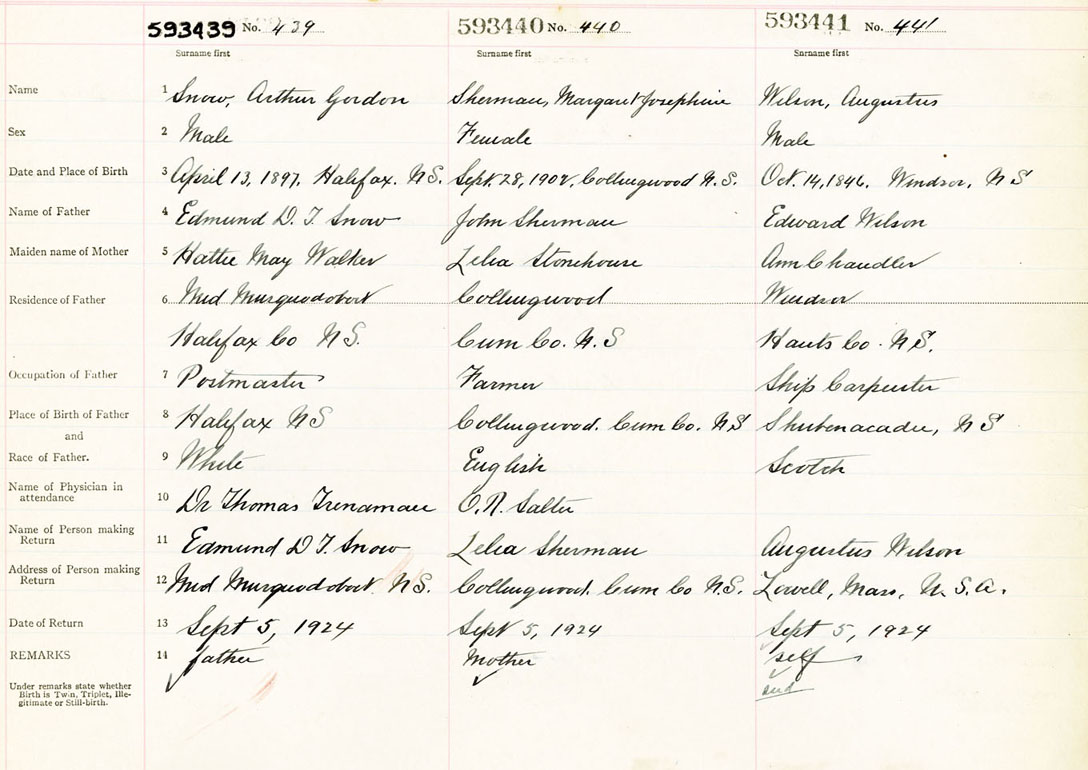 593439 No. 439 593440 No. 440 593441 No. 441
Surname first Surname first Surname first
Name 1 Snow, Arthur Gordon Sherman, Margaret Josephine Wilson, Augustus
Sex 2 Male Female Male
Date and Place of Birth 3 April 13, 1897, Halifax. N.S. Sept. 28, 1902, Collingwood N.S. Oct. 14, 1846. Windsor, N S
Name of Father 4 Edmund D. T. Snow John Sherman Edward Wilson
Maiden name of Mother 5 Hattie May Walker Lelia Stonehouse Ann Chandler
Residence of Father 6. Mid Musquodoboit Collingwood Windsor
Halifax Co N S. Cum Co. N.S Hants Co. N.S.
Occupation of Father 7 Postmaster Farmer Ship Carpenter
Place of Birth of Father 8 Halifax N S Collingwood. Cum Co. N S Shubenacadie, N S
and
Race of Father. 9 White English Scotch
Name of Physician in
attendance 10 Dr Thomas Trenaman O. N. Salter
Name of Person making
Return 11 Edmund D T. Snow Lelia Sherman Augustus Wilson
Address of Person making
Return 12 Mid Musquodoboit N S. Collingwood. Cum Co N.S. Lowell, Mass, U. S. A.
Date of Return 13 Sept 5, 1924 Sept 5, 1924 Sept 5, 1924
REMARKS 14 father Mother self
Under remarks state whether
Birth is Twin, Triplet, Ille-
gitimate or Still-birth.